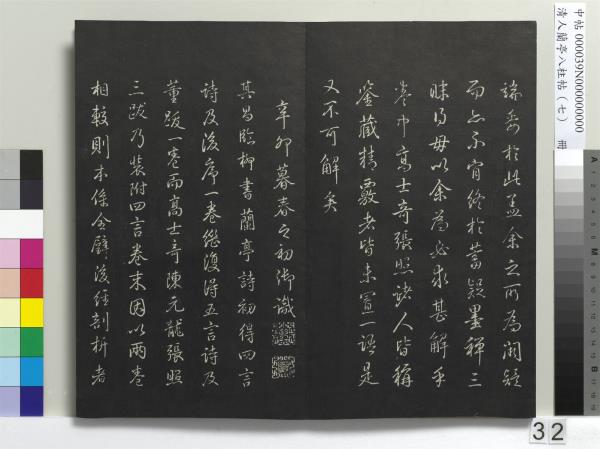 端委於此孟余之所為闕疑
而亦不肯終於蓄疑墨稗三
昧得毋以余為必求甚解乎
卷中高士奇張照諸人皆稱
鑒藏精覈者皆未置一語是
又不可解矣
辛卯暮春之初御識
其昌臨柳書蘭亭詩初得四言
詩及後序一卷繼復得五言詩及
董跋一卷而高士奇陳元龍張照
三跋乃裝附四言卷末因以兩卷
相較則本係全璧後經剖析者
中帖 000039N000000000
清人蘭亭八柱帖(七) 冊
32